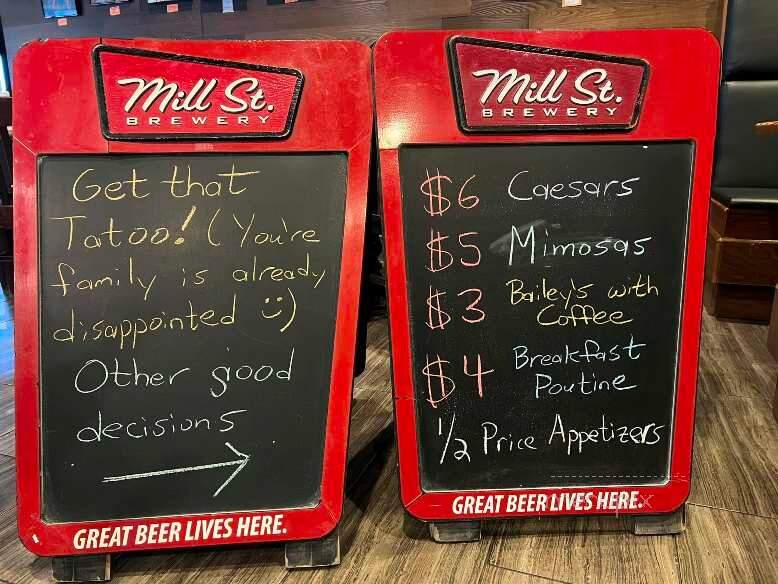 Mill St.
BREWERY
Get that
Tatoo! (You're
family is already
disappointed :)
Other good
decisions
→
GREAT BEER LIVES HERE.
Mill St.
BREWERY
$6 Caesars
$5 Mimosas
$3 Bailey's with
Coffee
$4 Breakfast
Poutine
1/2 Price Appetizers
GREAT BEER LIVES HERE.